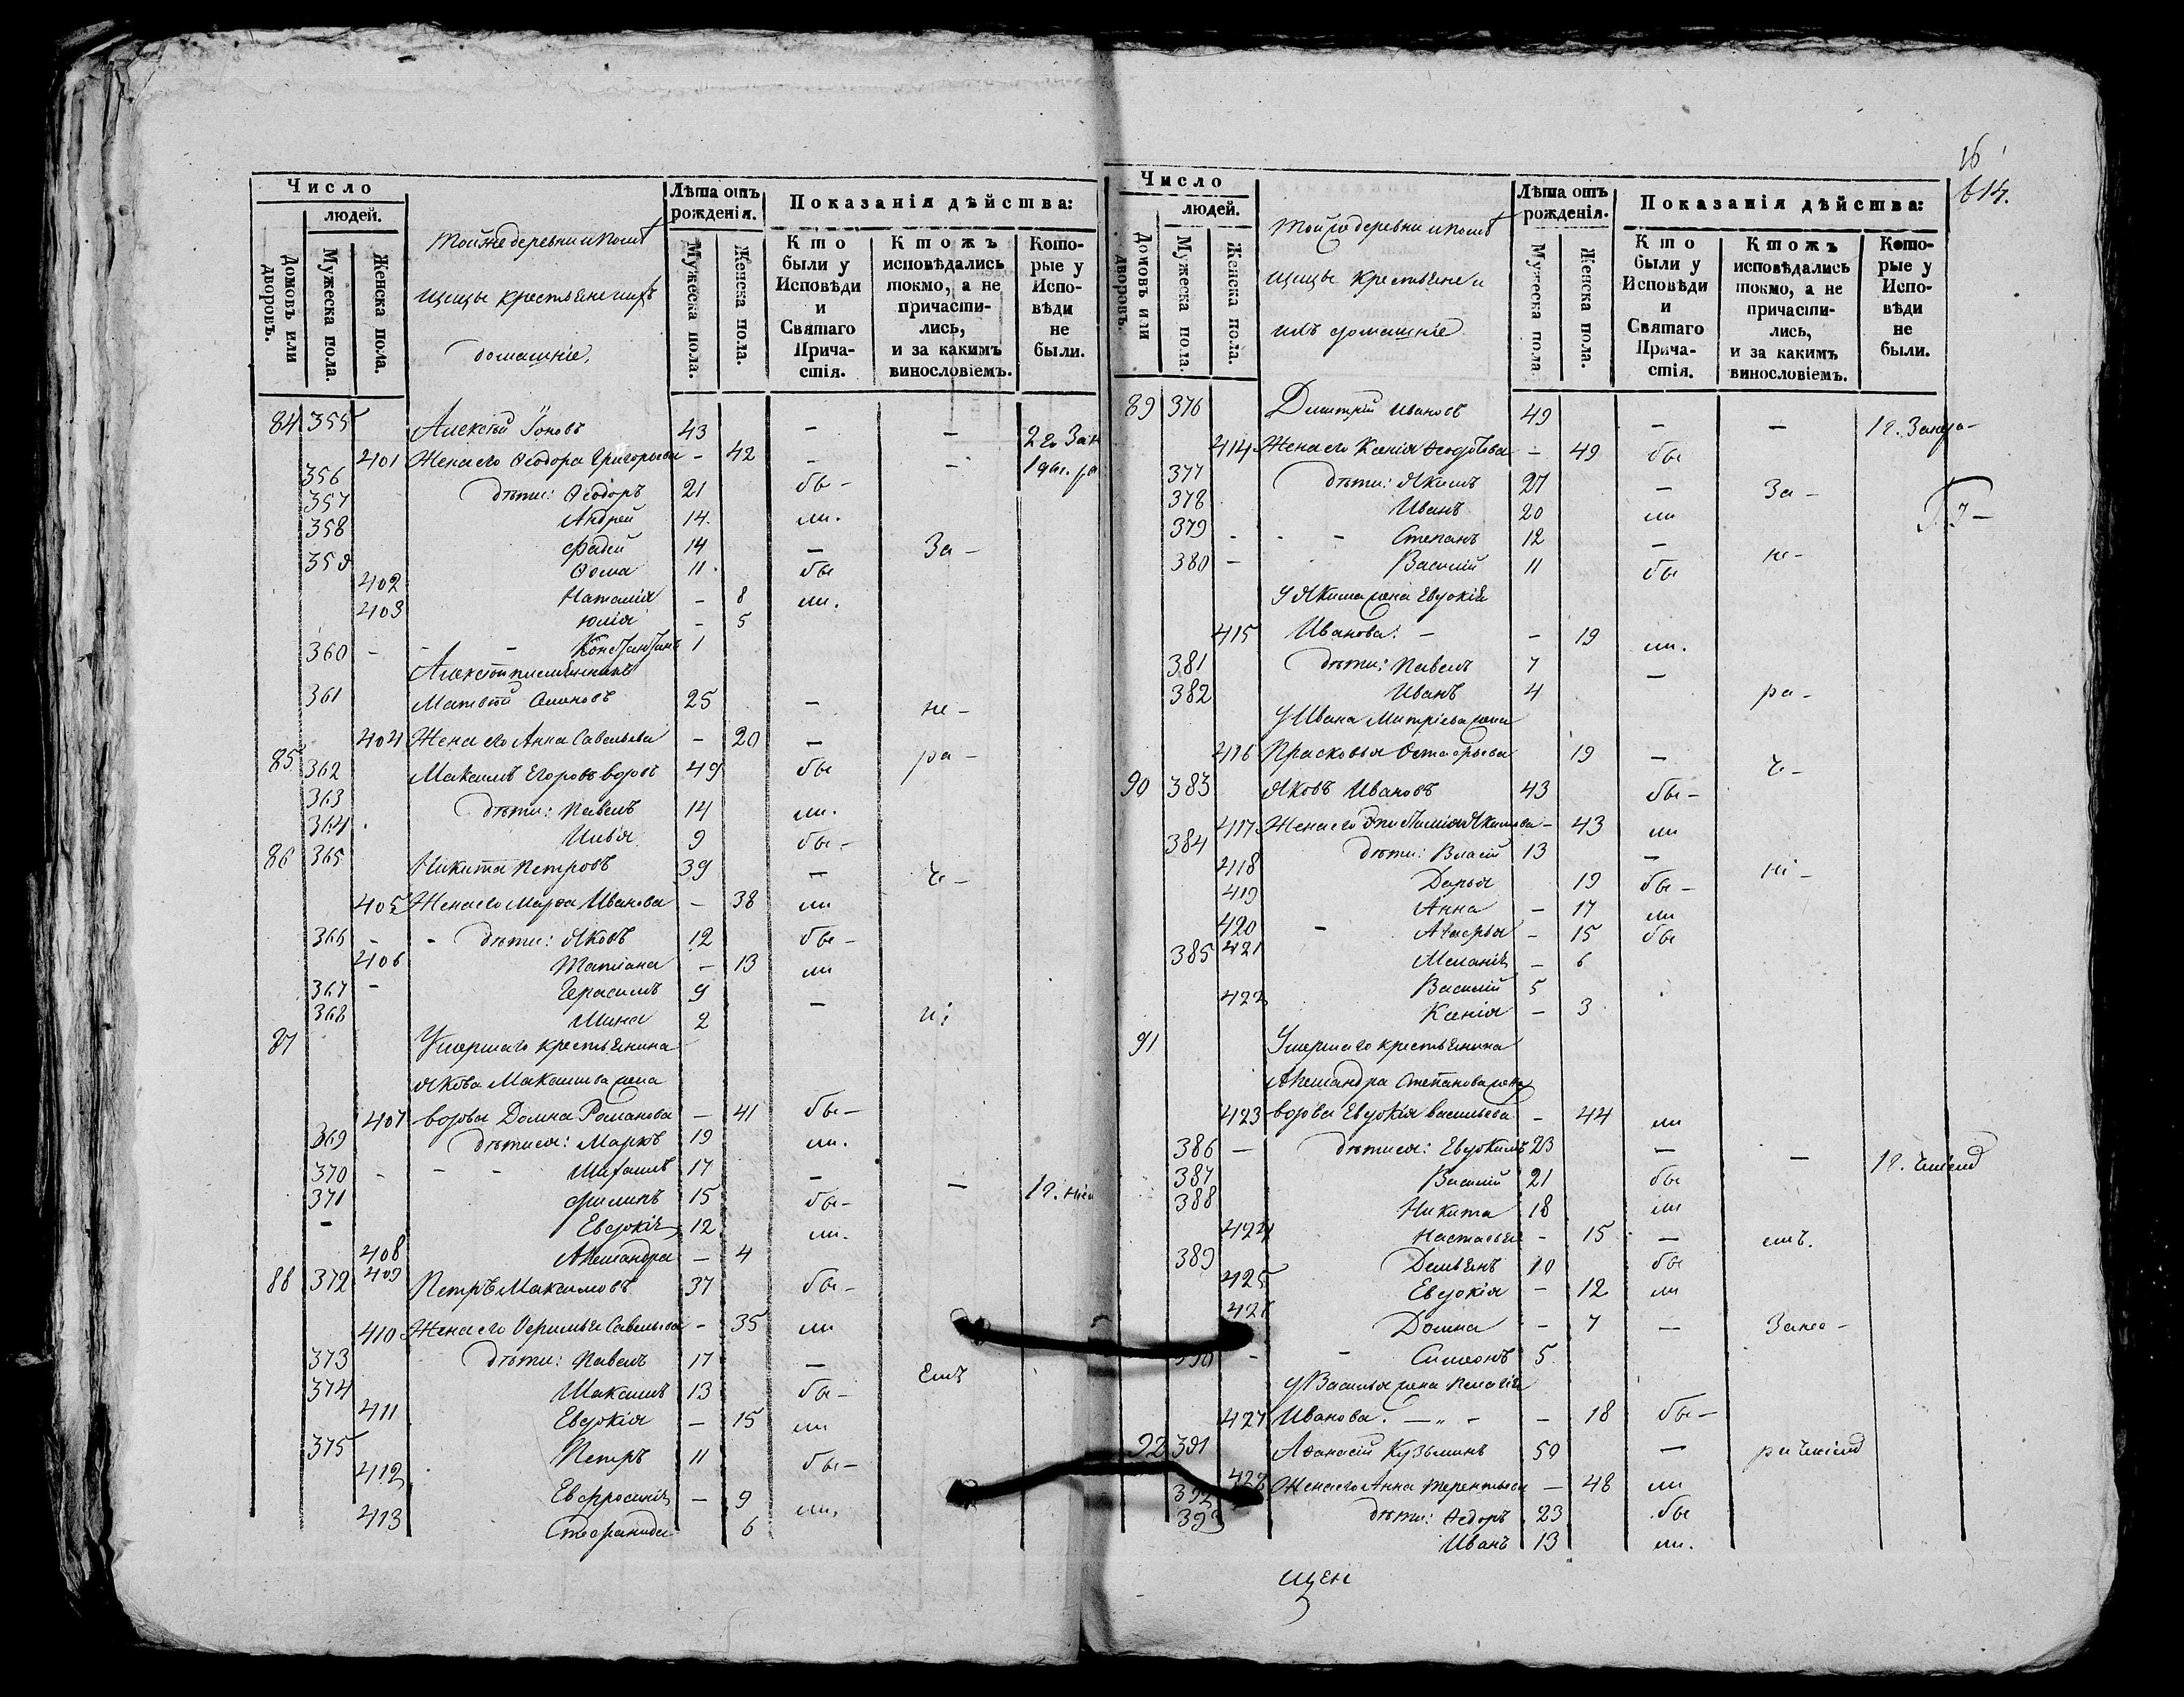 Число
людей.
Домовъ или дворовъ.
Мужеска пола.
Женска пола.
Тойже деревни и помѣ
щицы крестьяне и ихъ
домашніе,
Лѣта отъ рожденія.
Мужеска пола.
Женска пола.
Показанія дѣйства:
Кто были у Исповѣди и Святаго Причастія.
Ктожъ исповѣдались токмо, а не причастились, и за какимъ винословіемъ.
Которые у Исповѣди не были.
84 355 Алексѣй Іоновъ 43 — —
401 Жена его Ѳеодора Григорьева — 42 — —
356 дѣти: Ѳеодоръ 21 бы —
357 Андрей 14. ли.
358 Фадей 14 — За —
359 Ѳома 11. бы
402 Наталія — 8 ли.
403 Юлія — 5
360 — — — Константинъ 1
Алексѣя племянникъ
361 Матвѣй 25 — не —
404 Жена его Анна Савельева — 20 —
85 362 Максимъ Егоровъ вдовъ 49 бы ра —
363 дѣти: Павелъ 14 ли.
364 Илья 9 бы —
86 365 Никита Петровъ 39 — че —
405 Жена его Марѳа Иванова — 38 ли
366 — — дѣти: Яковъ 12 бы —
406 Татіана — 13 ли
367 — Герасимъ 9
368 2 —
87 Умершаго крестьянина
Якова Максимова жена
407 вдова Домна Романова — 41 бы —
369 дѣти ея: Марко 19 ли.
370 — — — Михаилъ 17 — —
371 Филипъ 15 бы —
— Евдокія 12 ли.
408 Александра — 4
88 372 409 Петръ Максимовъ 37 бы —
410 Жена его Савельева — 35 ли
373 дѣти: Павелъ 17 —
374 Максимъ 13 бы —
411 Евдокія — 15 ли
375 Петръ 11 бы —
412 Евфросинія — 9 ли.
413 Стефанида 6
16
614.
Число
людей.
Домовъ или дворовъ.
Мужеска пола.
Женска пола.
Той же деревни и помѣ
щицы крестьяне и
ихъ домашніе
Лѣта отъ рожденія.
Мужеска пола.
Женска пола.
Показанія дѣйства:
Кто были у Исповѣди и Святаго Причастія.
Ктожъ исповѣдались токмо, а не причастились, и за какимъ винословіемъ.
Которые у Исповѣди не были.
89 376 Дмитрій Ивановъ 49 — —
414 Жена его Ксенія — 49 бы
377 дѣти: Якимъ 27 — За —
378 Иванъ 20 ли
379 - - - Степанъ 12 —
380 — Василій 11 бы не —
У Якима жена Евдокія
415 Иванова. — — 19 ли.
381 дѣти: Павелъ 7
382 Иванъ 4 — ра —
У Ивана Митріева жена
416 Прасковья 19 —
90 383 Яковъ Ивановъ 43 бы — че —
417 Жена его Якимова — 43 ли
384 дѣти: Власій 13 —
418 Дарья 19 бы —
419 Анна — 17 ли
420 — Агафья — 15 бы
385 421 Меланія — 6
Василій 5
422 Ксенія — 3
91 Умершаго крестьянина
Александра Степанова жена
423 вдова Евдокія Васильева — 44 ли
386 — дѣти ея: Евдокимъ 23 — —
387 Василій 21 бы
388 Никита 18 ли
424 Настасья — 15 —
389 Демьянъ 10 бы
425 Евдокія — 12 ли
Домна — 7 —
390 — — Симеонъ 5.
У Василья жена Пелагія
427 Иванова. — „ — — 18 бы —
92 391 Аѳанасій Кузьминъ 50 —
428 Жена его Анна Терентьева — 48 ли
392 дѣти: Ѳедоръ 23 бы
393 Иванъ 13 ли.